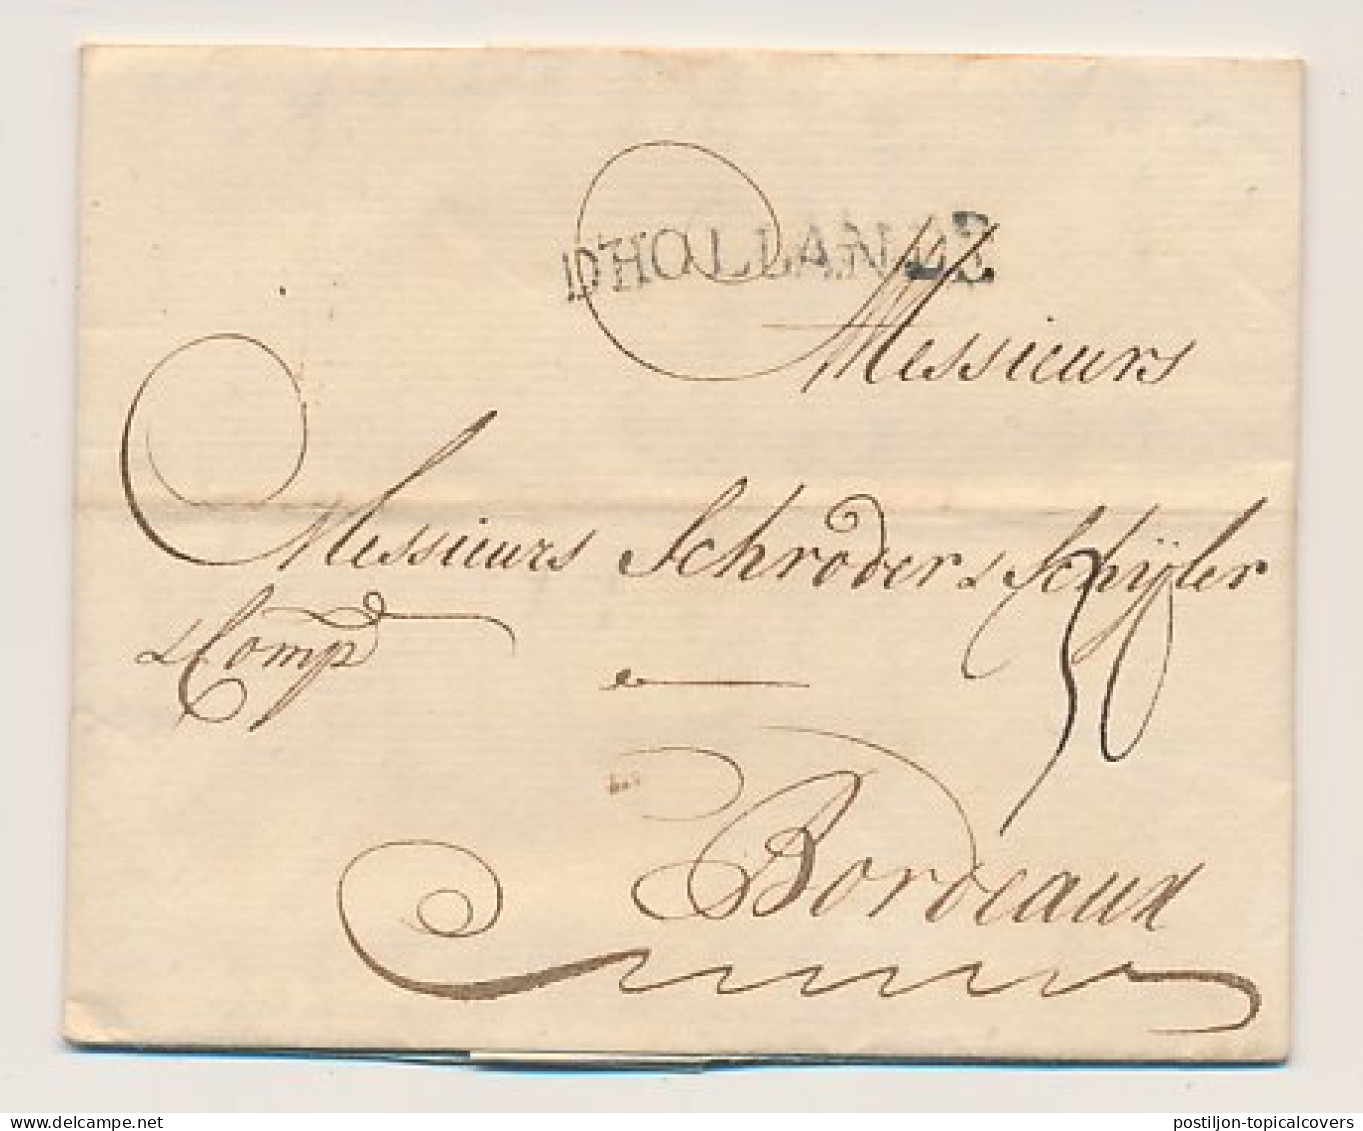 D'HOLLANDE
Messieurs
Messieurs Schroder & Schÿler
& Comp
30
Bordeaux
delcampe.net
postiljon-topicalcovers